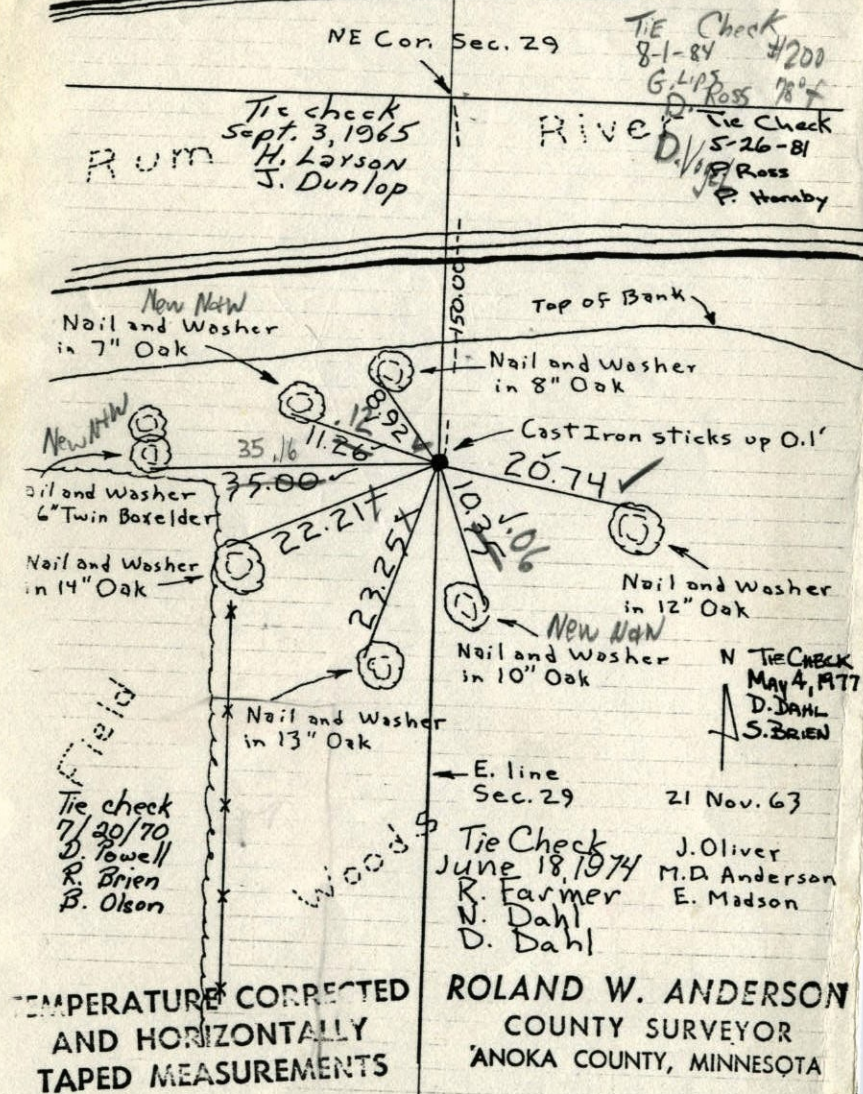 NE Cor. Sec. 29
TiE Check
8-1-84 #200
G. Lips
D. Ross 78°f
D. Vogel
Tie check
Sept. 3, 1965
H. Larson
J. Dunlop
Rum River
Tie Check
5-26-81
P. Ross
P. Hornby
150.00
Top of Bank
New N+W
Nail and Washer
in 7" Oak
Nail and Washer
in 8" Oak
8.92
.12
11.26
Cast Iron sticks up 0.1'
New N+W
35.16
35.00
20.74 ✓
ail and Washer
6" Twin Boxelder
22.21
23.25
10.35
.06
Nail and Washer
in 14" Oak
Nail and Washer
in 12" Oak
New N+W
Nail and Washer
in 10" Oak
Nail and Washer
in 13" Oak
N
TIE CHECK
May 4, 1977
D. DAHL
S. BRIEN
Field
E. line
Sec. 29
21 Nov. 63
J. Oliver
M.D. Anderson
E. Madson
Tie check
7/20/70
D. Powell
R. Brien
B. Olson
Woods
Tie Check
June 18, 1974
R. Farmer
N. Dahl
D. Dahl
TEMPERATURE CORRECTED
AND HORIZONTALLY
TAPED MEASUREMENTS
ROLAND W. ANDERSON
COUNTY SURVEYOR
ANOKA COUNTY, MINNESOTA